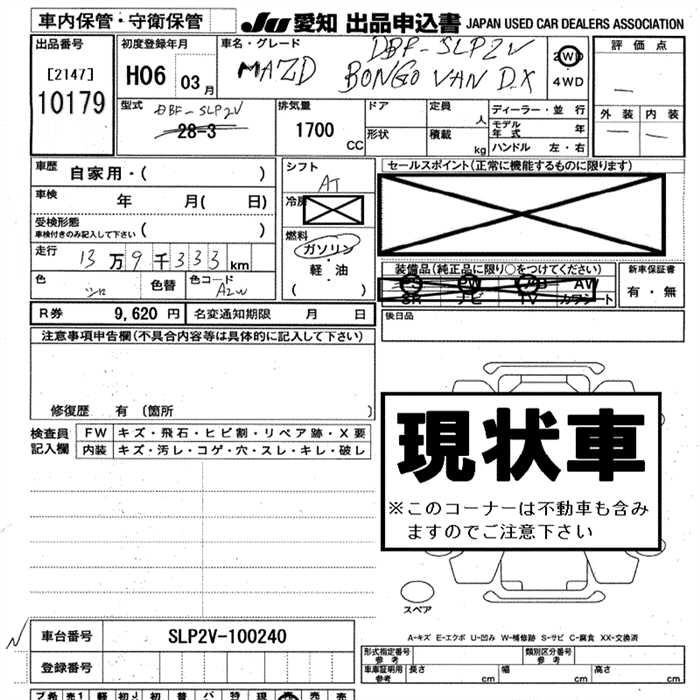 車内保管・守衛保管
JU 愛知 出品申込書 JAPAN USED CAR DEALERS ASSOCIATION
出品番号
[2147]
10179
初度登録年月
H06 03 月
車名・グレード
DBF-SLP2V
MAZD BONGO VAN DX
2WD
4WD
評価点
外装 内装
型式
DBF-SLP2V
28-3
排気量
1700
CC
ドア
形状
定員
人
積載
kg
ディーラー・並行
モデル
年式
年
ハンドル 左・右
車歴
自家用・( )
車検
年 月( 日)
受検形態
車検付きのみ記入して下さい ( )
走行
13万9千333km
色
シロ
色替
色コード
A2W
シフト
AT
冷房
燃料
ガソリン・
軽・油
( )
セールスポイント(正常に機能するものに限ります)
装備品(純正品に限り○をつけてください)
SR ナビ TV カワシート
AW
新車保証書
有・無
R券 9,620 円
名変通知期限 月 日
後日品
注意事項申告欄(不具合内容等は具体的に記入して下さい)
修復歴 有(箇所 )
検査員
記入欄
FW キズ・飛石・ヒビ割・リペア跡・X要
内装 キズ・汚レ・コゲ・穴・スレ・キレ・破レ
現状車
※このコーナーは不動車も含み
ますのでご注意下さい
スペア
A-キズ E-エクボ U-凹み W-補修跡 S-サビ C-腐食 XX-交換済
車台番号 SLP2V-100240
登録番号
形式指定番号
参考
類別区分番号
参考
車庫証明用
参考
長さ cm
幅 cm
高さ cm